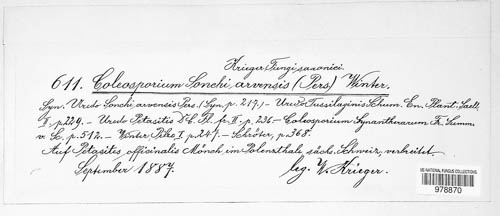 Krieger, Fungi saxonici.
611. Coleosporium Sonchi arvensis (Pers.) Winter.
Syn. Uredo Sonchi arvensis Pers. (Syn. p. 217.) – Uredo Tussilaginis Schum. En. Plant. Saell.
II. p. 229. – Uredo Petasitis DC. Fl. fr. II. p. 236 – Coleosporium Synantherarum Fr. Summ.
v. Sc. p. 512. – Winter, Pilze I. p. 247. – Schröter, p. 368.
Auf Petasites officinalis Mönch, im Polenzthale, sächs. Schweiz, verbreitet.
September 1887. leg. W. Krieger.
US NATIONAL FUNGUS COLLECTIONS
978870